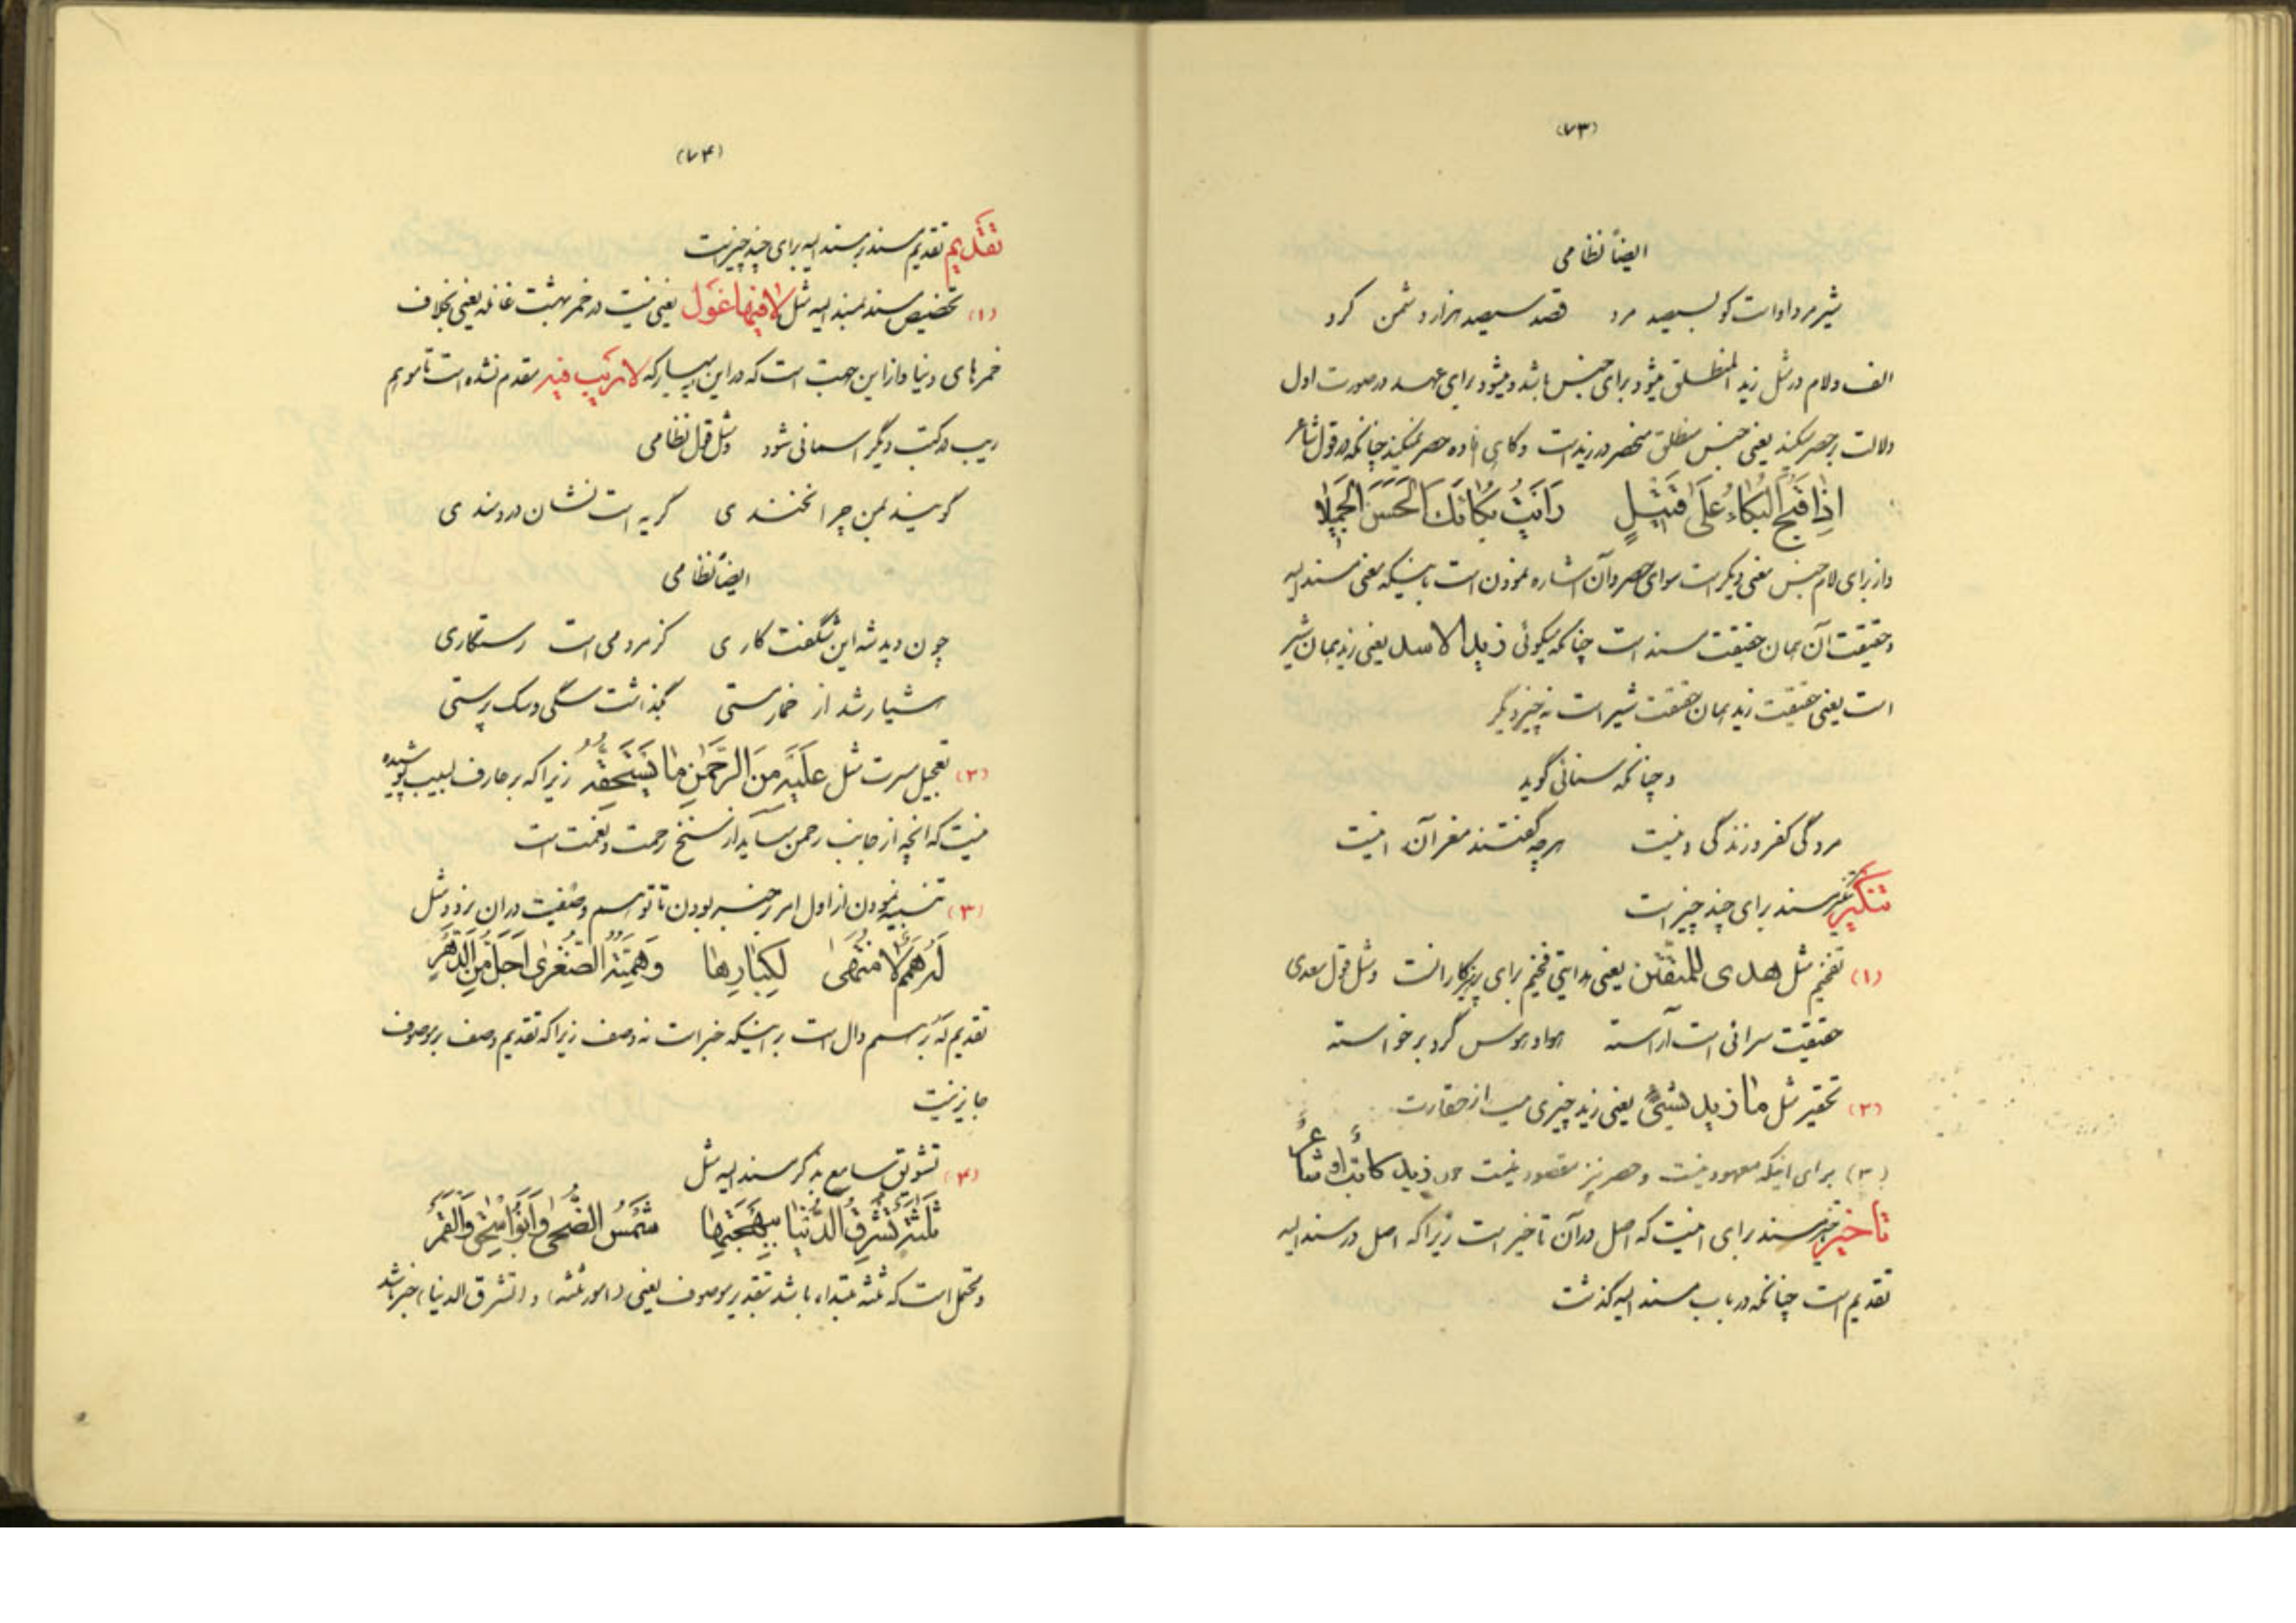 (۷۳)
ایضاً نظامی
شیر مرد او است کو بسیصد مرد قصد سیصد هزار دشمن کرد
الف و لام در مثل زید المنطلق میشود برای جنس باشد و میشود برای عهد در صورت اول
دلالت بر حصر میکند یعنی جنس منطلق منحصر در زید است و گاهی افاده حصر نمیکند چنانکه در قول شاعر
اِذا قَبُحَ البُکاءُ عَلی قَتیلٍ رَاَیتُ بُکائَکَ الحَسَنَ الجَمیلا
و از برای لام جنس معنی دیگر است سوای حصر و آن اشاره نمودن است باینکه معنی مسندالیه
و حقیقت آن همان حقیقت مسند است چنانکه میگوئی زید الاسد یعنی زید همان شیر
است یعنی حقیقت زید همان حقیقت شیر است نه چیز دیگر
و چنانکه سنائی گوید
مردگی کفر و زندگی دنیست هرچه گفتند مغز آن اینست
تنکیر مسند برای چند چیز است
(۱) تفخیم مثل هدی للمتقین یعنی هدایتی فخیم برای پرهیزکارانست و مثل قول سعدی
حقیقت سرائی است آراسته هوا و هوس گرد برخواسته
(۲) تحقیر مثل ما زید بشیء یعنی زید چیزی نیست از حقارت
(۳) برای اینکه معهود نیست و حصر نیز مقصود نیست چون زید کاتب و شاعر
تأخیر مسند برای اینست که اصل در آن تأخیر است زیرا که اصل در مسندالیه
تقدیم است چنانکه در باب مسندالیه گذشت
(۷۴)
تقدیم تقدیم مسند بر مسندالیه برای چند چیز است
(۱) تخصیص مسند بمسندالیه مثل لا فیها غول یعنی نیست در خمر بهشت غائله یعنی بخلاف
خمرهای دنیا و از این جهت است که در این آیه مبارکه لا ریب فیه مقدم نشده است تا موهم
ریب در کتب دیگر آسمانی شود و مثل قول نظامی
گویند بمن چرا نخندی گریه است نشان دردمندی
ایضاً نظامی
چون دید شه این شگفت کاری کز مردمی است رستگاری
هشیار شد از خمار مستی بگذاشت سگی و سگ پرستی
(۲) تعجیل مسرت مثل عَلَیهِ مِنَ الرَّحمنِ ما یَستَحِقُّهُ زیرا که بر عارف لبیب پوشیده
نیست که آنچه از جانب رحمن میآید از سنخ رحمت و نعمت است
(۳) تنبیه نمودن از اول امر بر خبر بودن تا توهم وصفیت در آن نرود مثل
لَهُ هِمَمٌ لا مُنتَهی لِکِبارِها وَ هِمَّتُهُ الصُّغری اَجَلُّ مِنَ الدَّهرِ
تقدیم له بر هم دال است بر اینکه خبر است نه وصف زیرا که تقدیم وصف بر موصوف
جایز نیست
(۴) تشویق سامع بذکر مسندالیه مثل
ثَلثَةٌ تُشرِقُ الدُّنیا بِبَهجَتِها شَمسُ الضُّحی وَ اَبو اِسحقَ وَ القَمَرُ
و محتمل است که ثلثه مبتداء باشد بتقدیر موصوف یعنی (امور ثلثه) و (تشرق الدنیا) خبر باشد